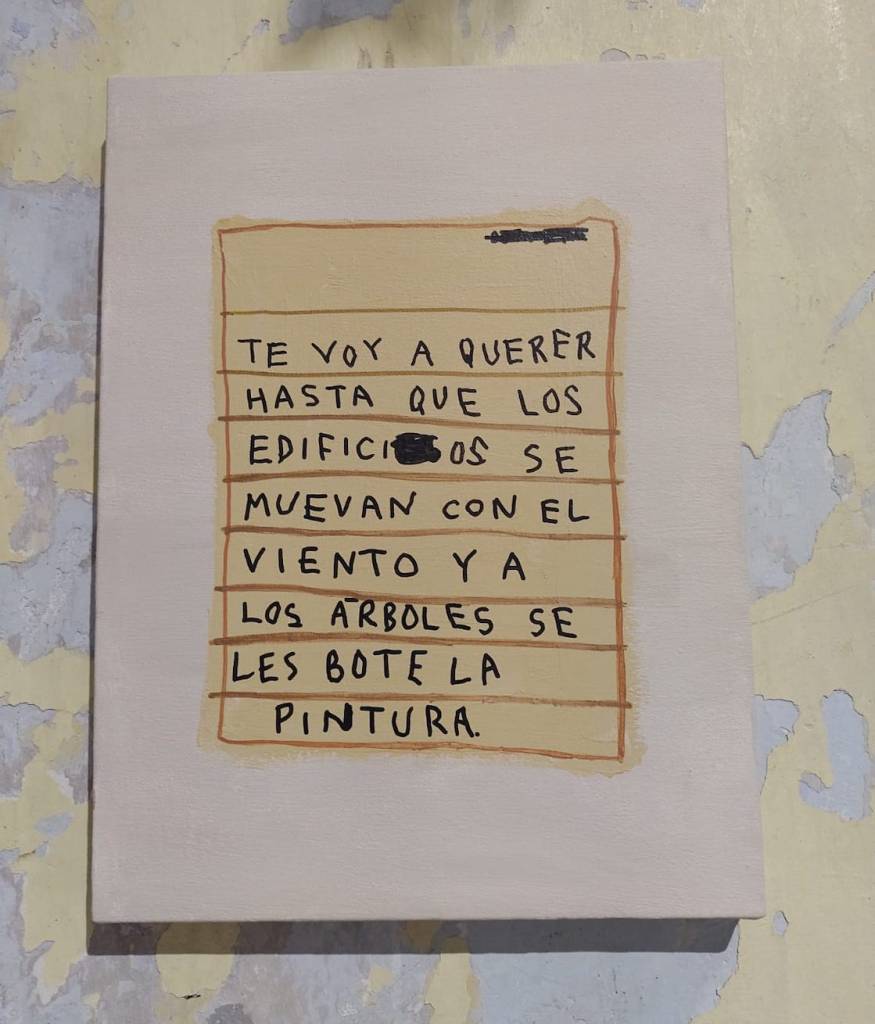 TE VOY A QUERER
HASTA QUE LOS
EDIFICIOS SE
MUEVAN CON EL
VIENTO Y A
LOS ÁRBOLES SE
LES BOTE LA
PINTURA.